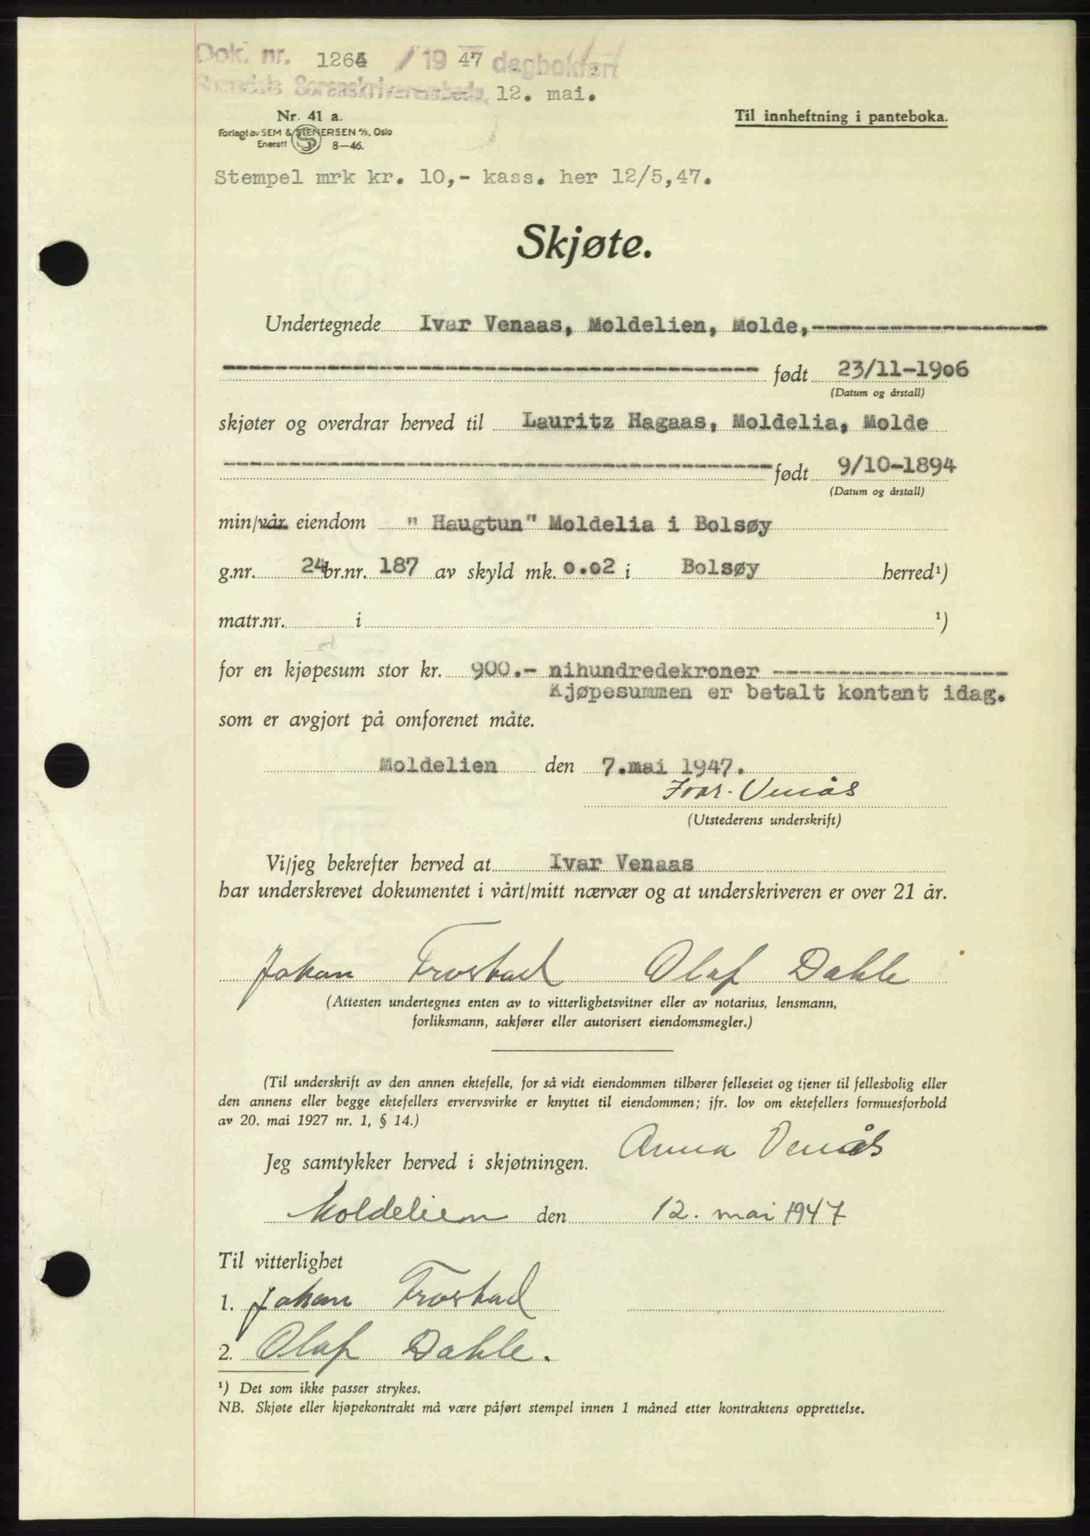 Dok. nr. 1264 / 19 47 dagbokført
Sorenskriverembede, 12. mai.
Nr. 41 a.
Forlagt av SEM & STENERSEN A/S, Oslo
Enerett 8—46.
Til innheftning i panteboka.
Stempel mrk kr. 10,- kass. her 12/5,47.
Skjøte.
Undertegnede Ivar Venaas, Moldelien, Molde,
født 23/11-1906
(Datum og årstall)
skjøter og overdrar herved til Lauritz Hagaas, Moldelia, Molde
født 9/10-1894
(Datum og årstall)
min/vår eiendom " Haugtun" Moldelia i Bolsøy
g.nr. 24 br.nr. 187 av skyld mk. 0.02 i Bolsøy herred¹)
matr.nr. i ¹)
for en kjøpesum stor kr. 900.- nihundredekroner
Kjøpesummen er betalt kontant idag.
som er avgjort på omforenet måte.
Moldelien den 7.mai 1947.
Ivar Venås
(Utstederens underskrift)
Vi/jeg bekrefter herved at Ivar Venaas
har underskrevet dokumentet i vårt/mitt nærvær og at underskriveren er over 21 år.
Johan Frostad Olaf Dahle
(Attesten undertegnes enten av to vitterlighetsvitner eller av notarius, lensmann,
forliksmann, sakfører eller autorisert eiendomsmegler.)
(Til underskrift av den annen ektefelle, for så vidt eiendommen tilhører felleseiet og tjener til fellesbolig eller
den annens eller begge ektefellers ervervsvirke er knyttet til eiendommen; jfr. lov om ektefellers formuesforhold
av 20. mai 1927 nr. 1, § 14.)
Jeg samtykker herved i skjøtningen. Anna Venås
Moldelien den 12. mai 1947
Til vitterlighet
1. Johan Frostad
2. Olaf Dahle.
¹) Det som ikke passer strykes.
NB. Skjøte eller kjøpekontrakt må være påført stempel innen 1 måned etter kontraktens opprettelse.